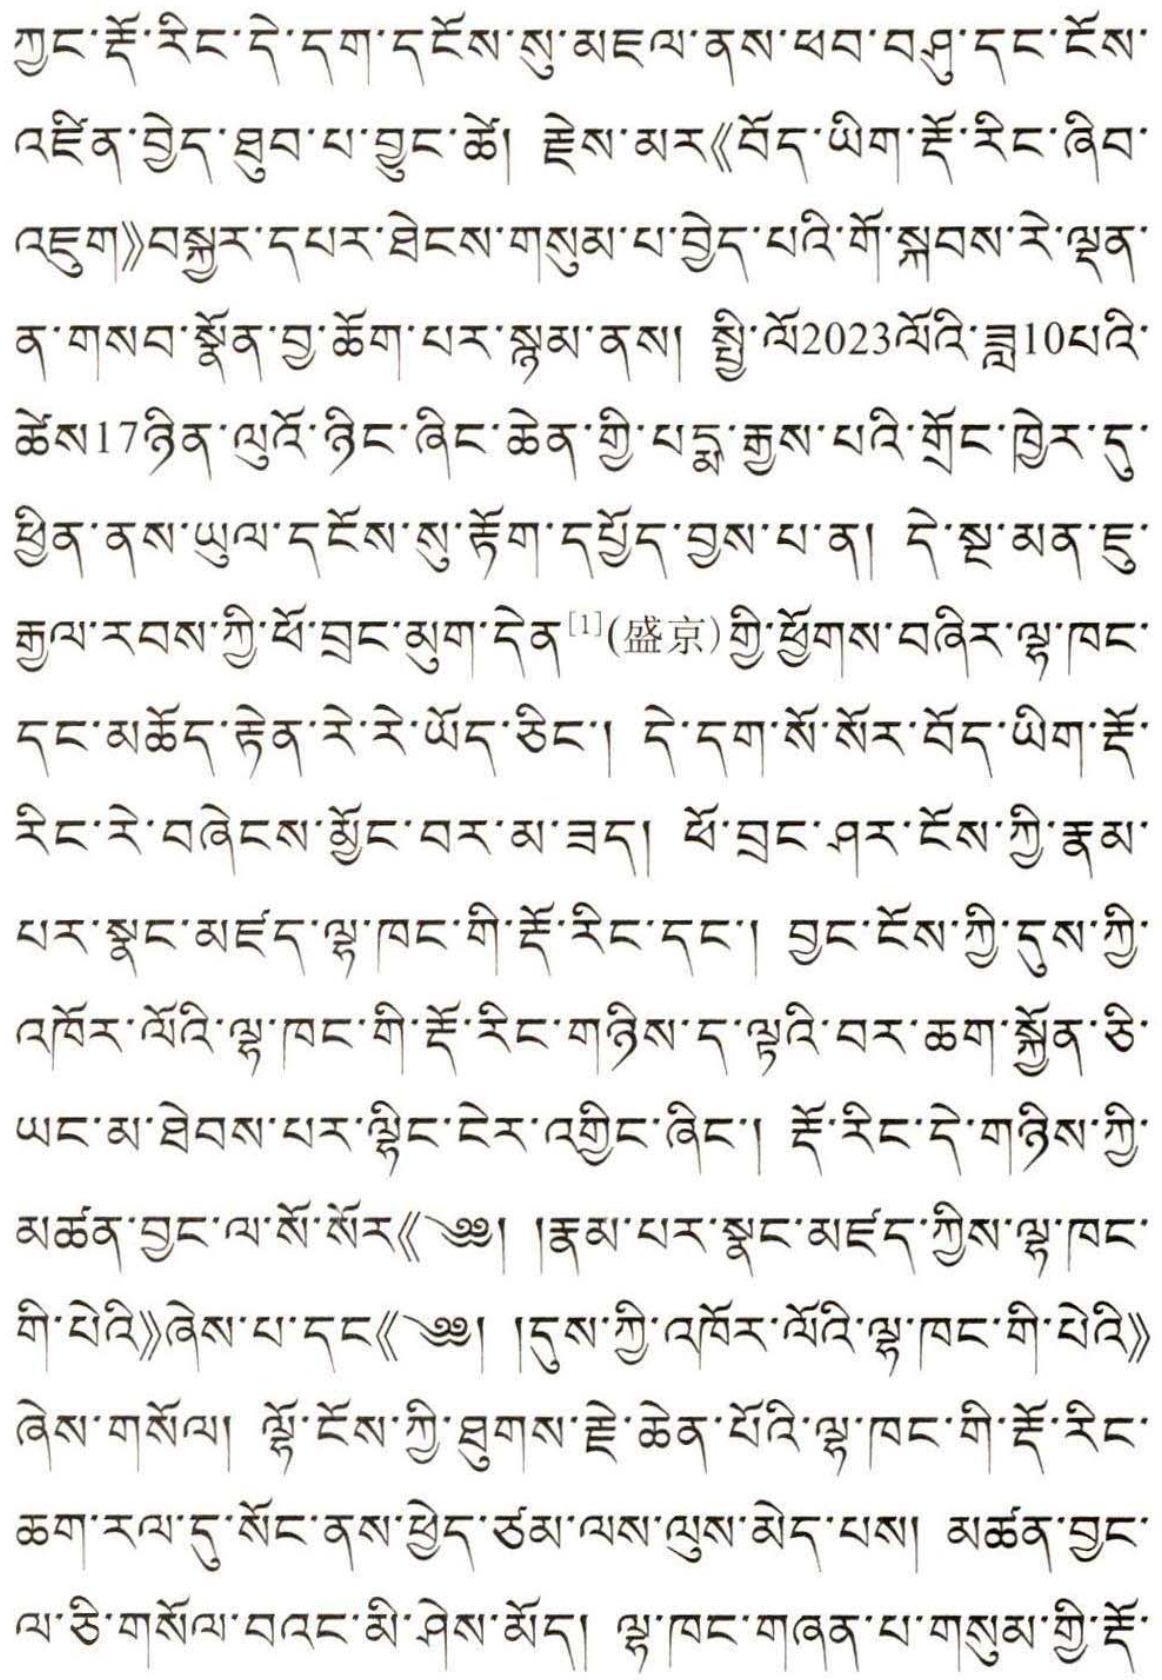 ཀྱང་རྡོ་རིང་དེ་དག་དངོས་སུ་མཇལ་ནས་ཕབ་བཤུ་དང་ངོས་
འཛིན་བྱེད་ཐུབ་པ་བྱུང་ཚེ། རྗེས་མར《བོད་ཡིག་རྡོ་རིང་ཞིབ་
འཇུག》བསྐྱར་དཔར་ཐེངས་གསུམ་པ་བྱེད་པའི་གོ་སྐབས་རེ་ལྡན་
ན་གསབ་སྣོན་བྱ་ཆོག་པར་སྙམ་ནས། སྤྱི་ལོ2023ལོའི་ཟླ10པའི་
ཚེས17ཉིན་ལུའོ་ཉིང་ཞིང་ཆེན་གྱི་པདྨ་རྒྱས་པའི་གྲོང་ཁྱེར་དུ་
ཕྱིན་ནས་ཡུལ་དངོས་སུ་རྟོག་དཔྱོད་བྱས་པ་ན། དེ་སྔ་མན་ཇུ་
རྒྱལ་རབས་ཀྱི་ཕོ་བྲང་མུག་དེན[1](盛京)གྱི་ཕྱོགས་བཞིར་ལྷ་ཁང་
དང་མཆོད་རྟེན་རེ་རེ་ཡོད་ཅིང་། དེ་དག་སོ་སོར་བོད་ཡིག་རྡོ་
རིང་རེ་བཞེངས་མྱོང་བར་མ་ཟད། ཕོ་བྲང་ཤར་ངོས་ཀྱི་རྣམ་
པར་སྣང་མཛད་ལྷ་ཁང་གི་རྡོ་རིང་དང་། བྱང་ངོས་ཀྱི་དུས་ཀྱི་
འཁོར་ལོའི་ལྷ་ཁང་གི་རྡོ་རིང་གཉིས་ད་ལྟའི་བར་ཆག་སྐྱོན་ཅི་
ཡང་མ་ཐེབས་པར་ལྷིང་ངེར་འགྱིང་ཞིང་། རྡོ་རིང་དེ་གཉིས་ཀྱི་
མཚན་བྱང་ལ་སོ་སོར《༄༅། །རྣམ་པར་སྣང་མཛད་ཀྱིས་ལྷ་ཁང་
གི་པེའི》ཞེས་པ་དང《༄༅། །དུས་ཀྱི་འཁོར་ལོའི་ལྷ་ཁང་གི་པེའི》
ཞེས་གསོལ། ལྷོ་ངོས་ཀྱི་ཐུགས་རྗེ་ཆེན་པོའི་ལྷ་ཁང་གི་རྡོ་རིང་
ཆག་རལ་དུ་སོང་ནས་ཕྱེད་ཙམ་ལས་ལུས་མེད་པས། མཚན་བྱང་
ལ་ཅི་གསོལ་བའང་མི་ཤེས་མོད། ལྷ་ཁང་གཞན་པ་གསུམ་གྱི་རྡོ་